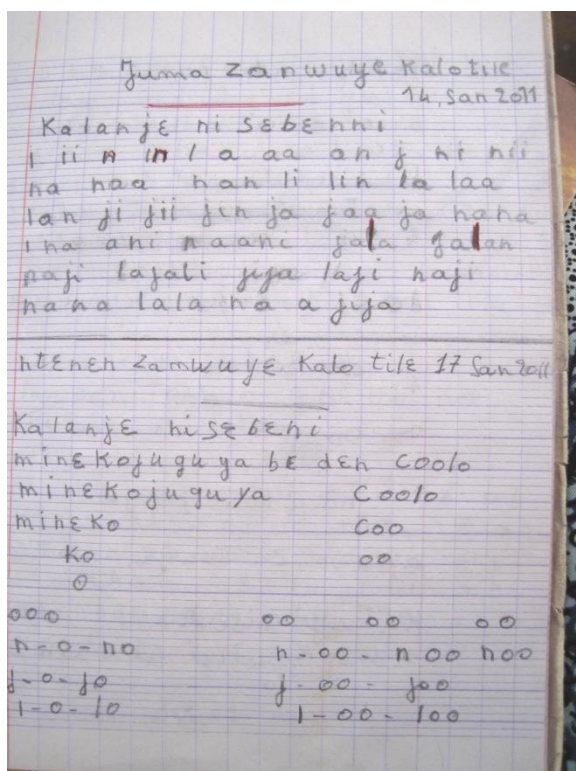 Juma Zanwuye Kalo tile
14, San 2011
Kalanjɛ ni sɛbɛnni
i ii n in l a aa an j ni nii
na naa nan li lin la laa
lan ji jii jin ja jaa ja nana
ina ani naani jala jalan
naji lajali jija laji naji
nana lala na a jija
ntɛnɛn Zamwuyɛ Kalo tilɛ 17 San 2011
Kalanjɛ ni sɛbɛni
minɛ Kojugu ya bɛ den Coolo
minɛ Kojugu ya Coolo
minɛ Ko Coo
Ko oo
O
ooo oo oo oo
n-o-no n-oo-noo noo
j-o-jo j-oo-joo
l-o-lo l-oo-loo